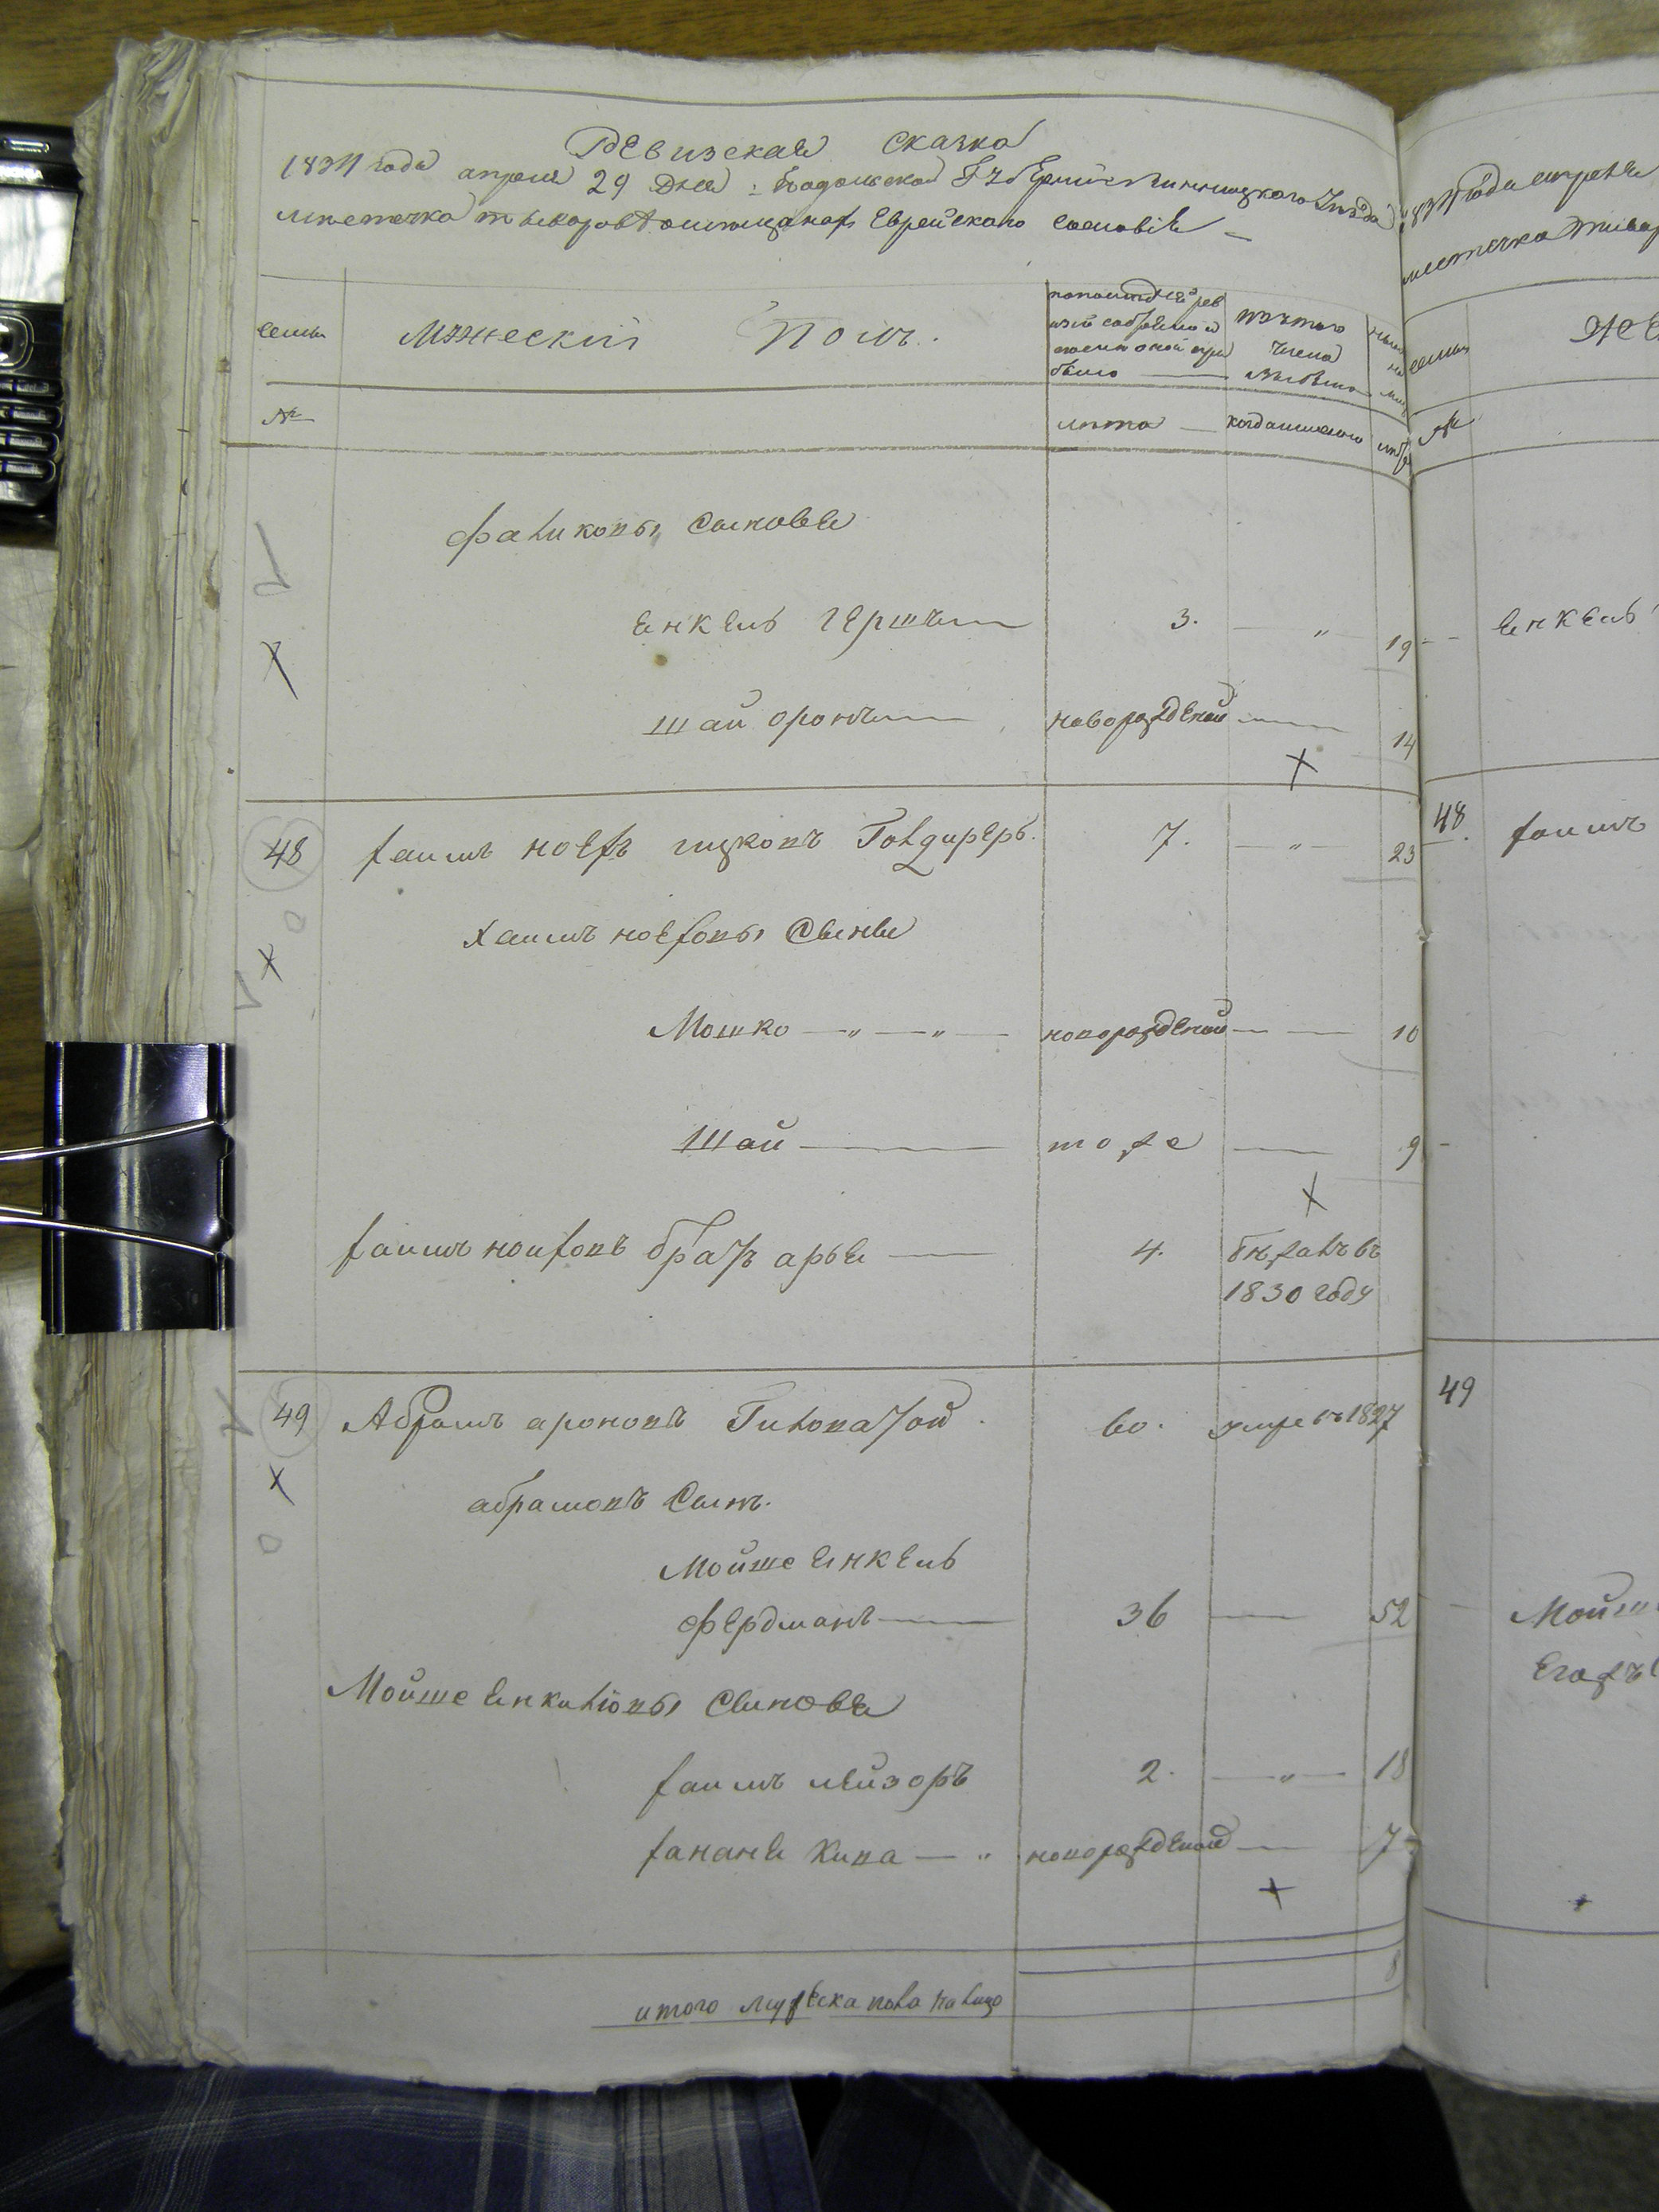 Ревизская Сказка
1834 года апреля 29 дня Подольской Губернии Винницкого Уезда
местечка Тыврова о мещанах Еврейского сословия
семьи
Мужеский Полъ.
по последней рев
изіи состояло и
после оной при
было
изъ того
числа
выбыло
ныне
на
лицо
№
лета
когда именно
лета
Фаликовы Сыновья
Енкель Гершъ
3.
19
Шай Оронъ
новорожденой
14
48
Хаимъ Ноехъ Ицковъ Голдиреръ.
7.
23
Хаимъ Ноеховы Сынья
Мошко
новорожденой
10
Шай
тоже
9
Хаимъ Ноиховъ братъ Арья
4.
бежалъ въ
1830 году
49
Абрамъ Ароновъ Гиловатой
60.
умре въ 1827
Абрамовъ Сынъ.
Мойше Енкель
Фердманъ
36
52
Мойше Енкилiовы Сыновья
Хаимъ Лейзоръ
2.
18
Ханане Кива
новорожденой
7
итого мужеска пола на лицо
8
1834 года апреля
местечка Тывро
семьи
Же
№
Енкель
48
Хаимъ
49
Мойш
Егожъ